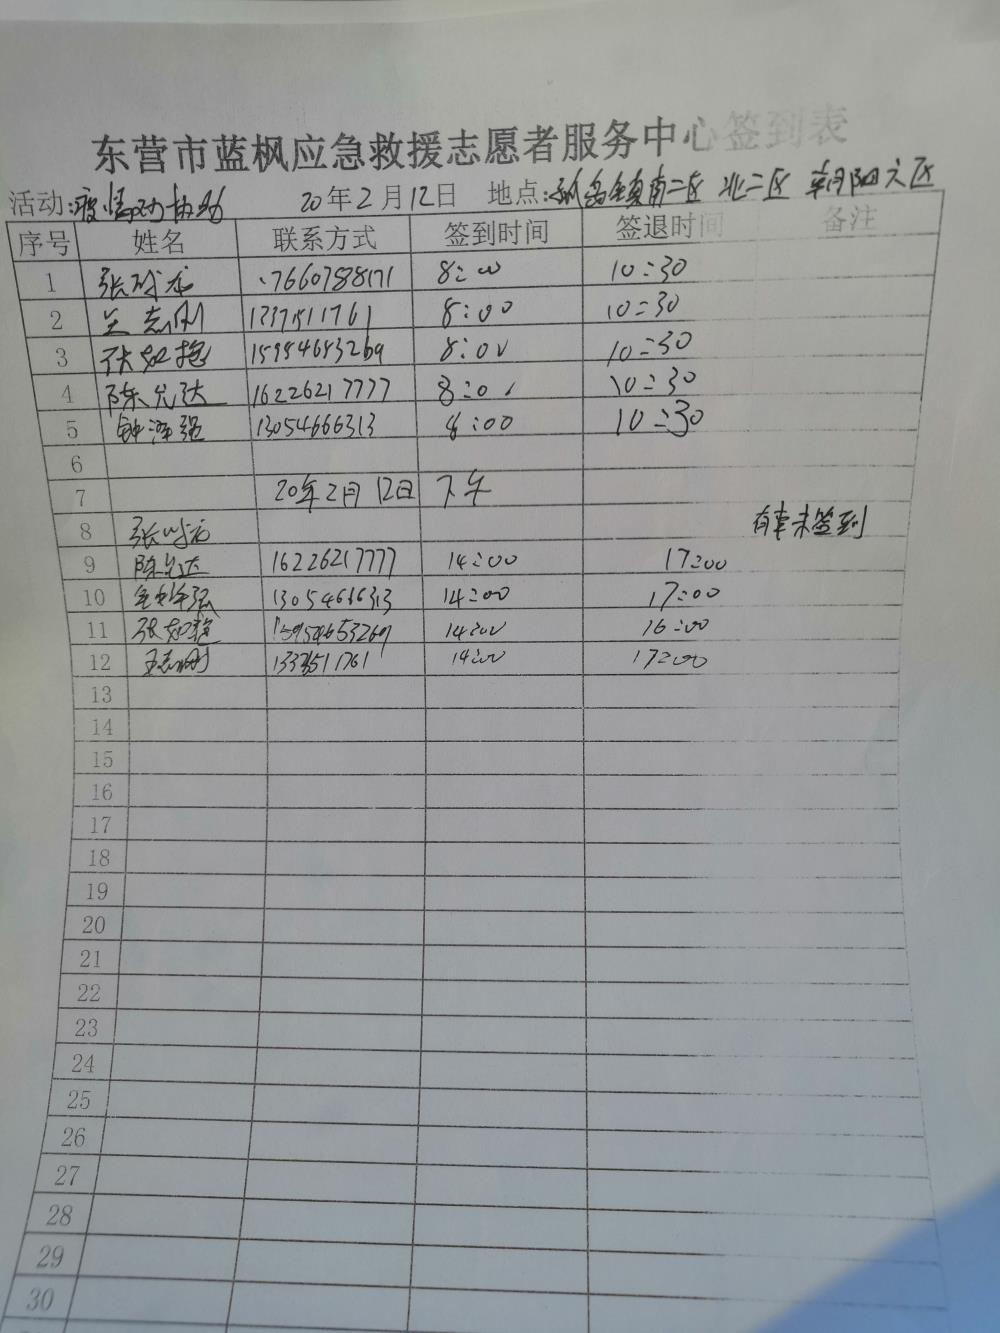 东营市蓝枫应急救援志愿者服务中心签到表
活动:疫情防协助 20年2月12日 地点:孤岛镇南二区 北二区 朝阳六区
序号 姓名 联系方式 签到时间 签退时间 备注
1 张 8:00 10:30
2 王志刚 8:00 10:30
3 张 15954653269 8:00 10:30
4 陈允达 16226217777 8:00 10:30
5 钟泽强 13054666313 8:00 10:30
6
7 20年2月12日 下午
8 张 有事未签到
9 陈允达 16226217777 14:00 17:00
10 13054666313 14:00 17:00
11 张 15954653269 14:00 16:00
12 王志刚 14:00 17:00
13
14
15
16
17
18
19
20
21
22
23
24
25
26
27
28
29
30